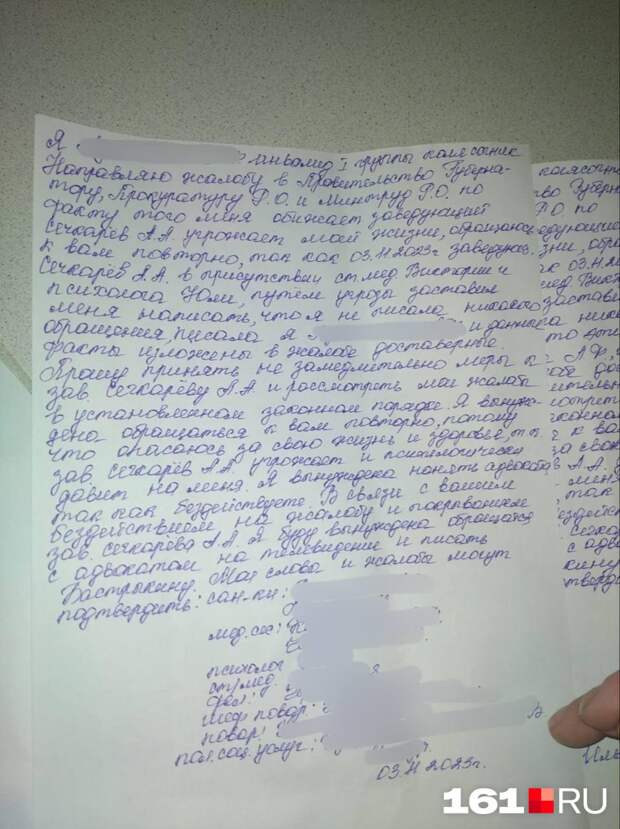 Я инвалид I группы колясочник
Направляю жалобу в Правительство Губерна-
тору, Прокуратуру Р.О. и Минтруд Р.О. по
факту того меня обижает заведующий
Сечкарев А.А. угрожает моей жизни, обращаюсь
к вам повторно, так как 03.11.2023г заведующ.
Сечкарев А.А. в присутствии ст.мед Виктории и
психолога Юли, путем угрозы заставил
меня написать, что я не писала никакого
обращения, писала я и данные
факты изложены в жалобе доставерные.
Прошу принять не замедлительно меры к
зав. Сечкареву А.А и рассмотреть мои жалобы
в установленном законном порядке. Я вынуж-
дена обращаться к вам повторно, потому
что опасаюсь за свою жизнь и здоровье, т.к
зав. Сечкарев А.А угрожает и психологически
давит на меня. Я вынуждена нанять адвоката
так как бездействуете. В связи с вашим
бездействием на жалобу и покрыванием
зав. Сечкарёва А.А. Я буду вынуждена обращатся
с адвокатом на телевидение и писать
Бастрыкину. Мои слова и жалобы могут
подтвердить: сан-ки:
мед.сес:
психолог
ст/мед.
повар:
пол.соц.услуг:
03.11 2023г.
161.RU